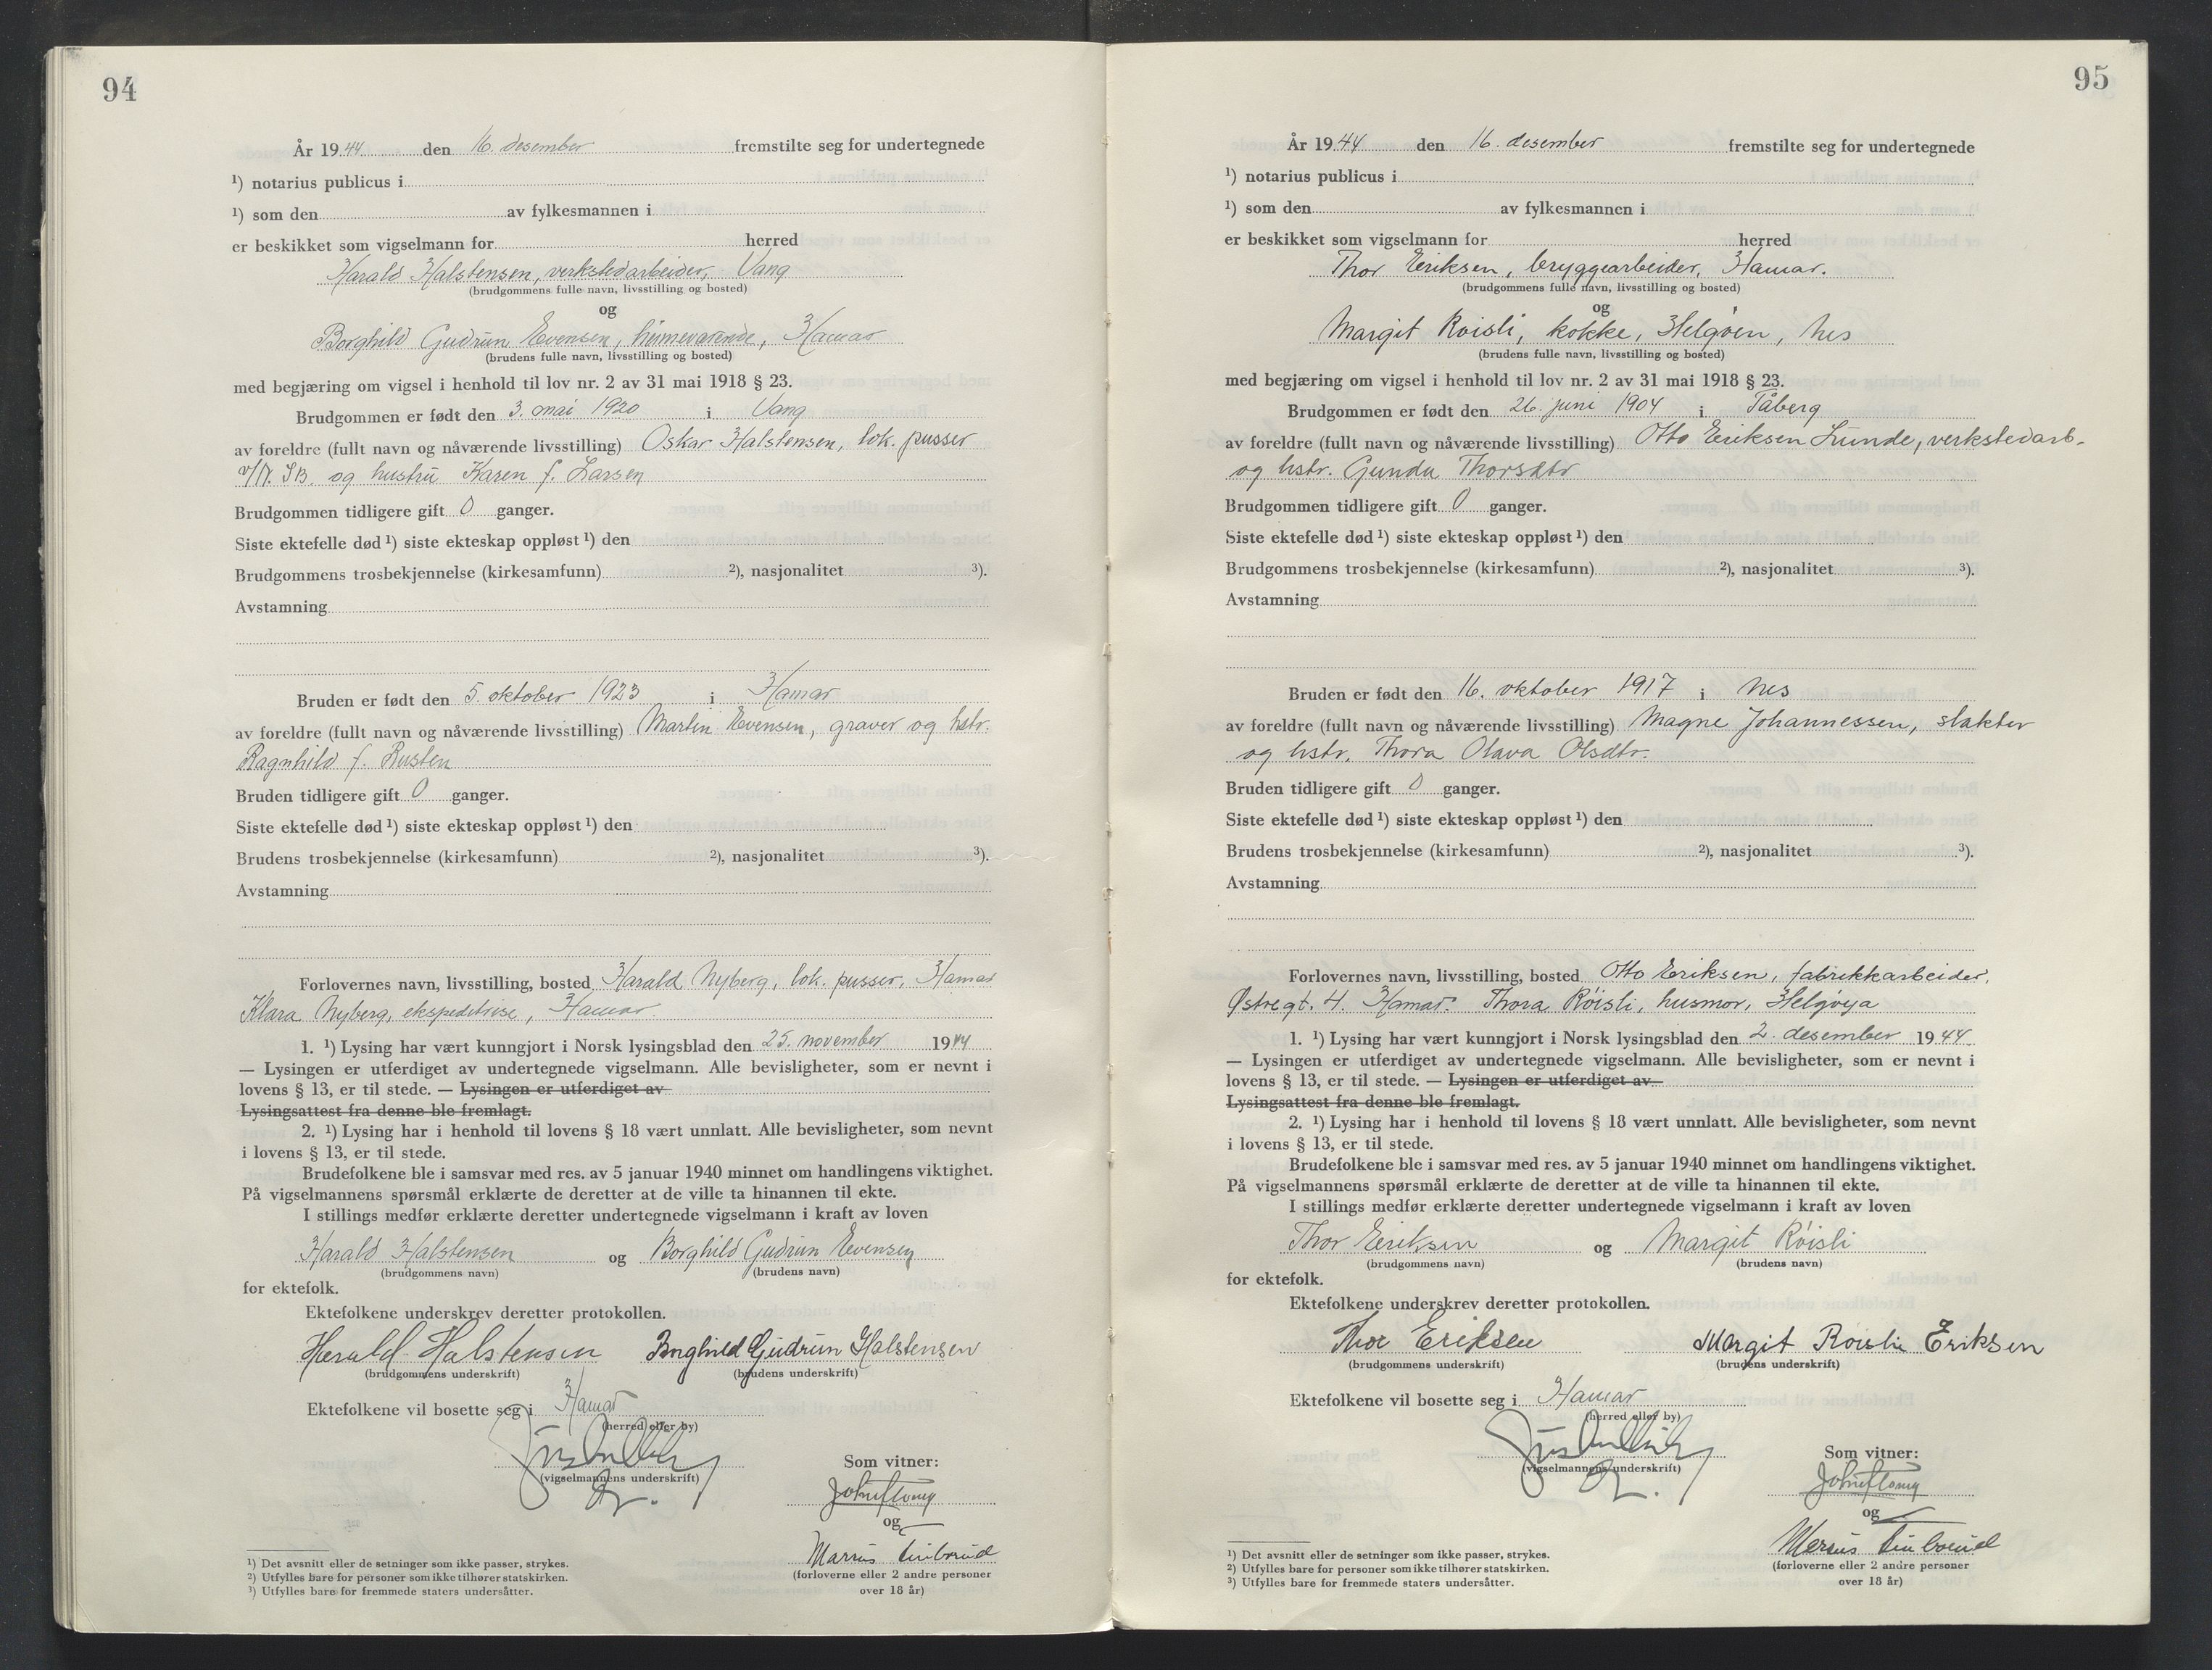 94
År 1944 den 16. desember fremstilte seg for undertegnede
¹) notarius publicus i
¹) som den av fylkesmannen i
er beskikket som vigselmann for herred
Harald Halstensen, verkstedarbeider, Vang
(brudgommens fulle navn, livsstilling og bosted)
og
Borghild Gudrun Evensen, heimeværende, Hamar
(brudens fulle navn, livsstilling og bosted)
med begjæring om vigsel i henhold til lov nr. 2 av 31 mai 1918 § 23.
Brudgommen er født den 3. mai 1920 i Vang
av foreldre (fullt navn og nåværende livsstilling) Oskar Halstensen, lok. pusser
v/N.S.B. og hustru Karen f. Larsen
Brudgommen tidligere gift 0 ganger.
Siste ektefelle død ¹) siste ekteskap oppløst ¹) den
Brudgommens trosbekjennelse (kirkesamfunn) ²), nasjonalitet ³).
Avstamning
Bruden er født den 5. oktober 1923 i Hamar
av foreldre (fullt navn og nåværende livsstilling) Martin Evensen, graver og hstr.
Ragnhild f. Rusten
Bruden tidligere gift 0 ganger.
Siste ektefelle død ¹) siste ekteskap oppløst ¹) den
Brudens trosbekjennelse (kirkesamfunn) ²), nasjonalitet ³).
Avstamning
Forlovernes navn, livsstilling, bosted Harald Nyberg, lok. pusser, Hamar
Klara Nyberg, ekspeditrise, Hamar.
1. ¹) Lysing har vært kunngjort i Norsk lysingsblad den 25. november 1944
— Lysingen er utferdiget av undertegnede vigselmann. Alle bevisligheter, som er nevnt i
lovens § 13, er til stede. — Lysingen er utferdiget av
Lysingsattest fra denne ble fremlagt.
2. ¹) Lysing har i henhold til lovens § 18 vært unnlatt. Alle bevisligheter, som nevnt
i lovens § 13, er til stede.
Brudefolkene ble i samsvar med res. av 5 januar 1940 minnet om handlingens viktighet.
På vigselmannens spørsmål erklærte de deretter at de ville ta hinannen til ekte.
I stillings medfør erklærte deretter undertegnede vigselmann i kraft av loven
Harald Halstensen og Borghild Gudrun Evensen
(brudgommens navn) (brudens navn)
for ektefolk.
Ektefolkene underskrev deretter protokollen.
Harald Halstensen Borghild Gudrun Halstensen
(brudgommens underskrift) (brudens underskrift)
Ektefolkene vil bosette seg i Hamar
(herred eller by)
(vigselmannens underskrift)
Som vitner:
og
Marius
(forloverne eller 2 andre personer
over 18 år)
¹) Det avsnitt eller de setninger som ikke passer, strykes.
²) Utfylles bare for personer som ikke tilhører statskirken.
³) Utfylles bare for fremmede staters undersåtter.
95
År 1944 den 16. desember fremstilte seg for undertegnede
¹) notarius publicus i
¹) som den av fylkesmannen i
er beskikket som vigselmann for herred
Thor Eriksen, bryggearbeider, Hamar.
(brudgommens fulle navn, livsstilling og bosted)
og
Margit Röisli, kokke, Helgöen, Nes
(brudens fulle navn, livsstilling og bosted)
med begjæring om vigsel i henhold til lov nr. 2 av 31 mai 1918 § 23.
Brudgommen er født den 26. juni 1904 i Fåberg
av foreldre (fullt navn og nåværende livsstilling) Otto Eriksen Lunde, verkstedarb.
og hstr. Gunda Thorsdtr
Brudgommen tidligere gift 0 ganger.
Siste ektefelle død ¹) siste ekteskap oppløst ¹) den
Brudgommens trosbekjennelse (kirkesamfunn) ²), nasjonalitet ³).
Avstamning
Bruden er født den 16. oktober 1917 i Nes
av foreldre (fullt navn og nåværende livsstilling) Magne Johannessen, slakter
og hstr. Thora Olava Olsdtr.
Bruden tidligere gift 0 ganger.
Siste ektefelle død ¹) siste ekteskap oppløst ¹) den
Brudens trosbekjennelse (kirkesamfunn) ²), nasjonalitet ³).
Avstamning
Forlovernes navn, livsstilling, bosted Otto Eriksen, fabrikkarbeider,
Østregt. 4. Hamar. Thora Röisli, husmor, Helgöya
1. ¹) Lysing har vært kunngjort i Norsk lysingsblad den 2. desember 1944
— Lysingen er utferdiget av undertegnede vigselmann. Alle bevisligheter, som er nevnt i
lovens § 13, er til stede. — Lysingen er utferdiget av
Lysingsattest fra denne ble fremlagt.
2. ¹) Lysing har i henhold til lovens § 18 vært unnlatt. Alle bevisligheter, som nevnt
i lovens § 13, er til stede.
Brudefolkene ble i samsvar med res. av 5 januar 1940 minnet om handlingens viktighet.
På vigselmannens spørsmål erklærte de deretter at de ville ta hinannen til ekte.
I stillings medfør erklærte deretter undertegnede vigselmann i kraft av loven
Thor Eriksen og Margit Röisli
(brudgommens navn) (brudens navn)
for ektefolk.
Ektefolkene underskrev deretter protokollen.
Thor Eriksen Margit Röisli Eriksen
(brudgommens underskrift) (brudens underskrift)
Ektefolkene vil bosette seg i Hamar
(herred eller by)
(vigselmannens underskrift)
Som vitner:
og
Marius
(forloverne eller 2 andre personer
over 18 år)
¹) Det avsnitt eller de setninger som ikke passer, strykes.
²) Utfylles bare for personer som ikke tilhører statskirken.
³) Utfylles bare for fremmede staters undersåtter.